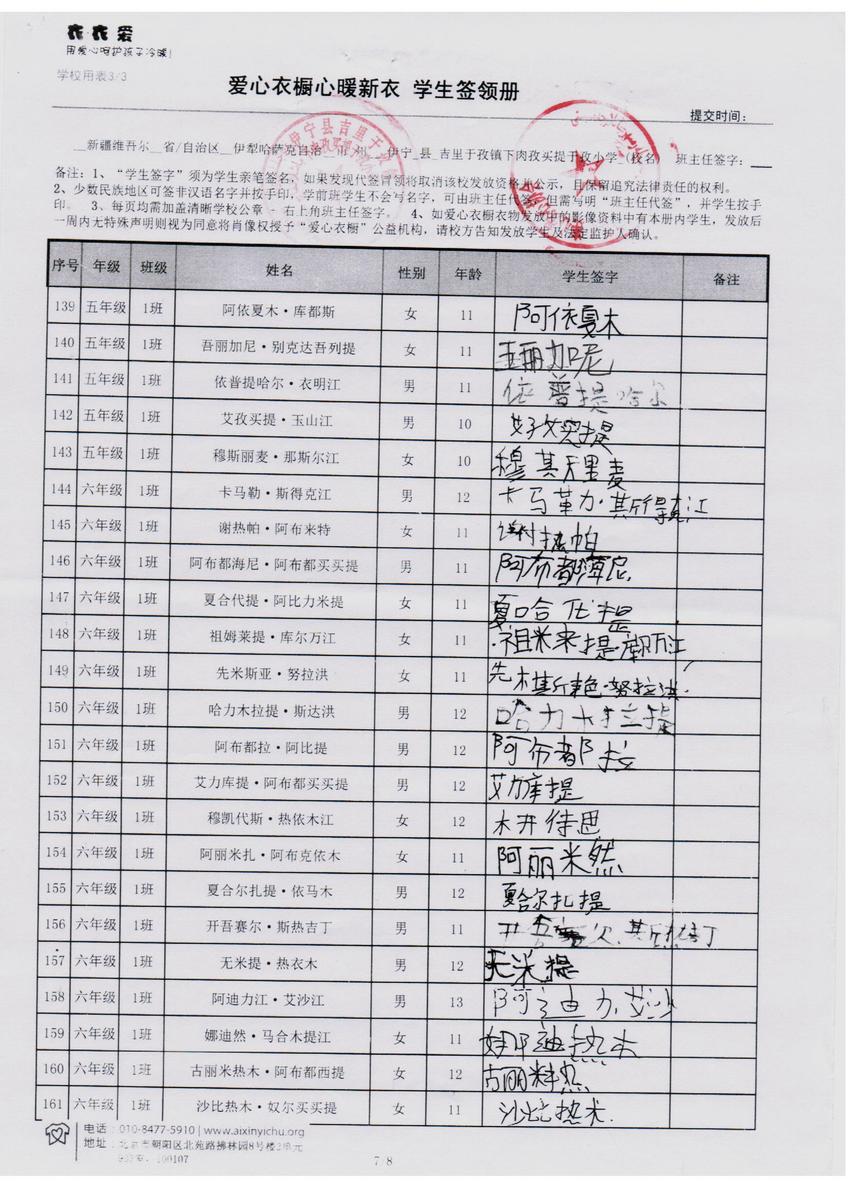 衣衣爱
用爱心呵护孩子冷暖!
学校用表3/3
爱心衣橱心暖新衣 学生签领册
提交时间:
新疆维吾尔 省/自治区 伊犁哈萨克自治 市/州 伊宁 县 吉里于孜镇下肉孜买提于孜小学 (校名) 班主任签字:
备注:1、“学生签字”须为学生亲笔签名,如果发现代签冒领将取消该校发放资格并公示,且保留追究法律责任的权利。
2、少数民族地区可签非汉语名字并按手印,学前班学生不会写名字,可由班主任代签,但需写明“班主任代签”,并学生按手
印。 3、每页均需加盖清晰学校公章、右上角班主任签字。 4、如爱心衣橱衣物发放中的影像资料中有本册内学生,发放后
一周内无特殊声明则视为同意将肖像权授予“爱心衣橱”公益机构,请校方告知发放学生及法定监护人确认。
序号 年级 班级 姓名 性别 年龄 学生签字 备注
139 五年级 1班 阿依夏木·库都斯 女 11 阿依夏木
140 五年级 1班 吾丽加尼·别克达吾列提 女 11 丽加尼
141 五年级 1班 依普提哈尔·衣明江 男 11 依普提哈尔
142 五年级 1班 艾孜买提·玉山江 男 10
143 五年级 1班 穆斯丽麦·那斯尔江 女 10 穆其里麦
144 六年级 1班 卡马勒·斯得克江 男 12 卡马革力·斯得克江
145 六年级 1班 谢热帕·阿布米特 女 11 谢热帕
146 六年级 1班 阿布都海尼·阿布都买买提 男 11 阿布都海尼
147 六年级 1班 夏合代提·阿比力米提 女 11 夏哈代提
148 六年级 1班 祖姆莱提·库尔万江 女 11 祖米来提·万江
149 六年级 1班 先米斯亚·努拉洪 女 11 先木斯·努拉洪
150 六年级 1班 哈力木拉提·斯达洪 男 12 哈力木拉提
151 六年级 1班 阿布都拉·阿比提 男 12 阿布都拉
152 六年级 1班 艾力库提·阿布都买买提 男 12 艾力库提
153 六年级 1班 穆凯代斯·热依木江 女 12 木开待思
154 六年级 1班 阿丽米扎·阿布克依木 女 11 阿丽米然
155 六年级 1班 夏合尔扎提·依马木 男 12 夏合尔扎提
156 六年级 1班 开吾赛尔·斯热吉丁 男 11
157 六年级 1班 无米提·热衣木 男 12 无米提
158 六年级 1班 阿迪力江·艾沙江 男 13 阿迪力·艾沙
159 六年级 1班 娜迪然·马合木提江 女 11 娜迪热木
160 六年级 1班 古丽米热木·阿布都西提 女 12 古丽米热
161 六年级 1班 沙比热木·奴尔买买提 女 11 沙比热木
电话:010-8477-5910 | www.aixinyichu.org
地址:北京市朝阳区北苑路拂林园8号楼2单元
100107
7/8